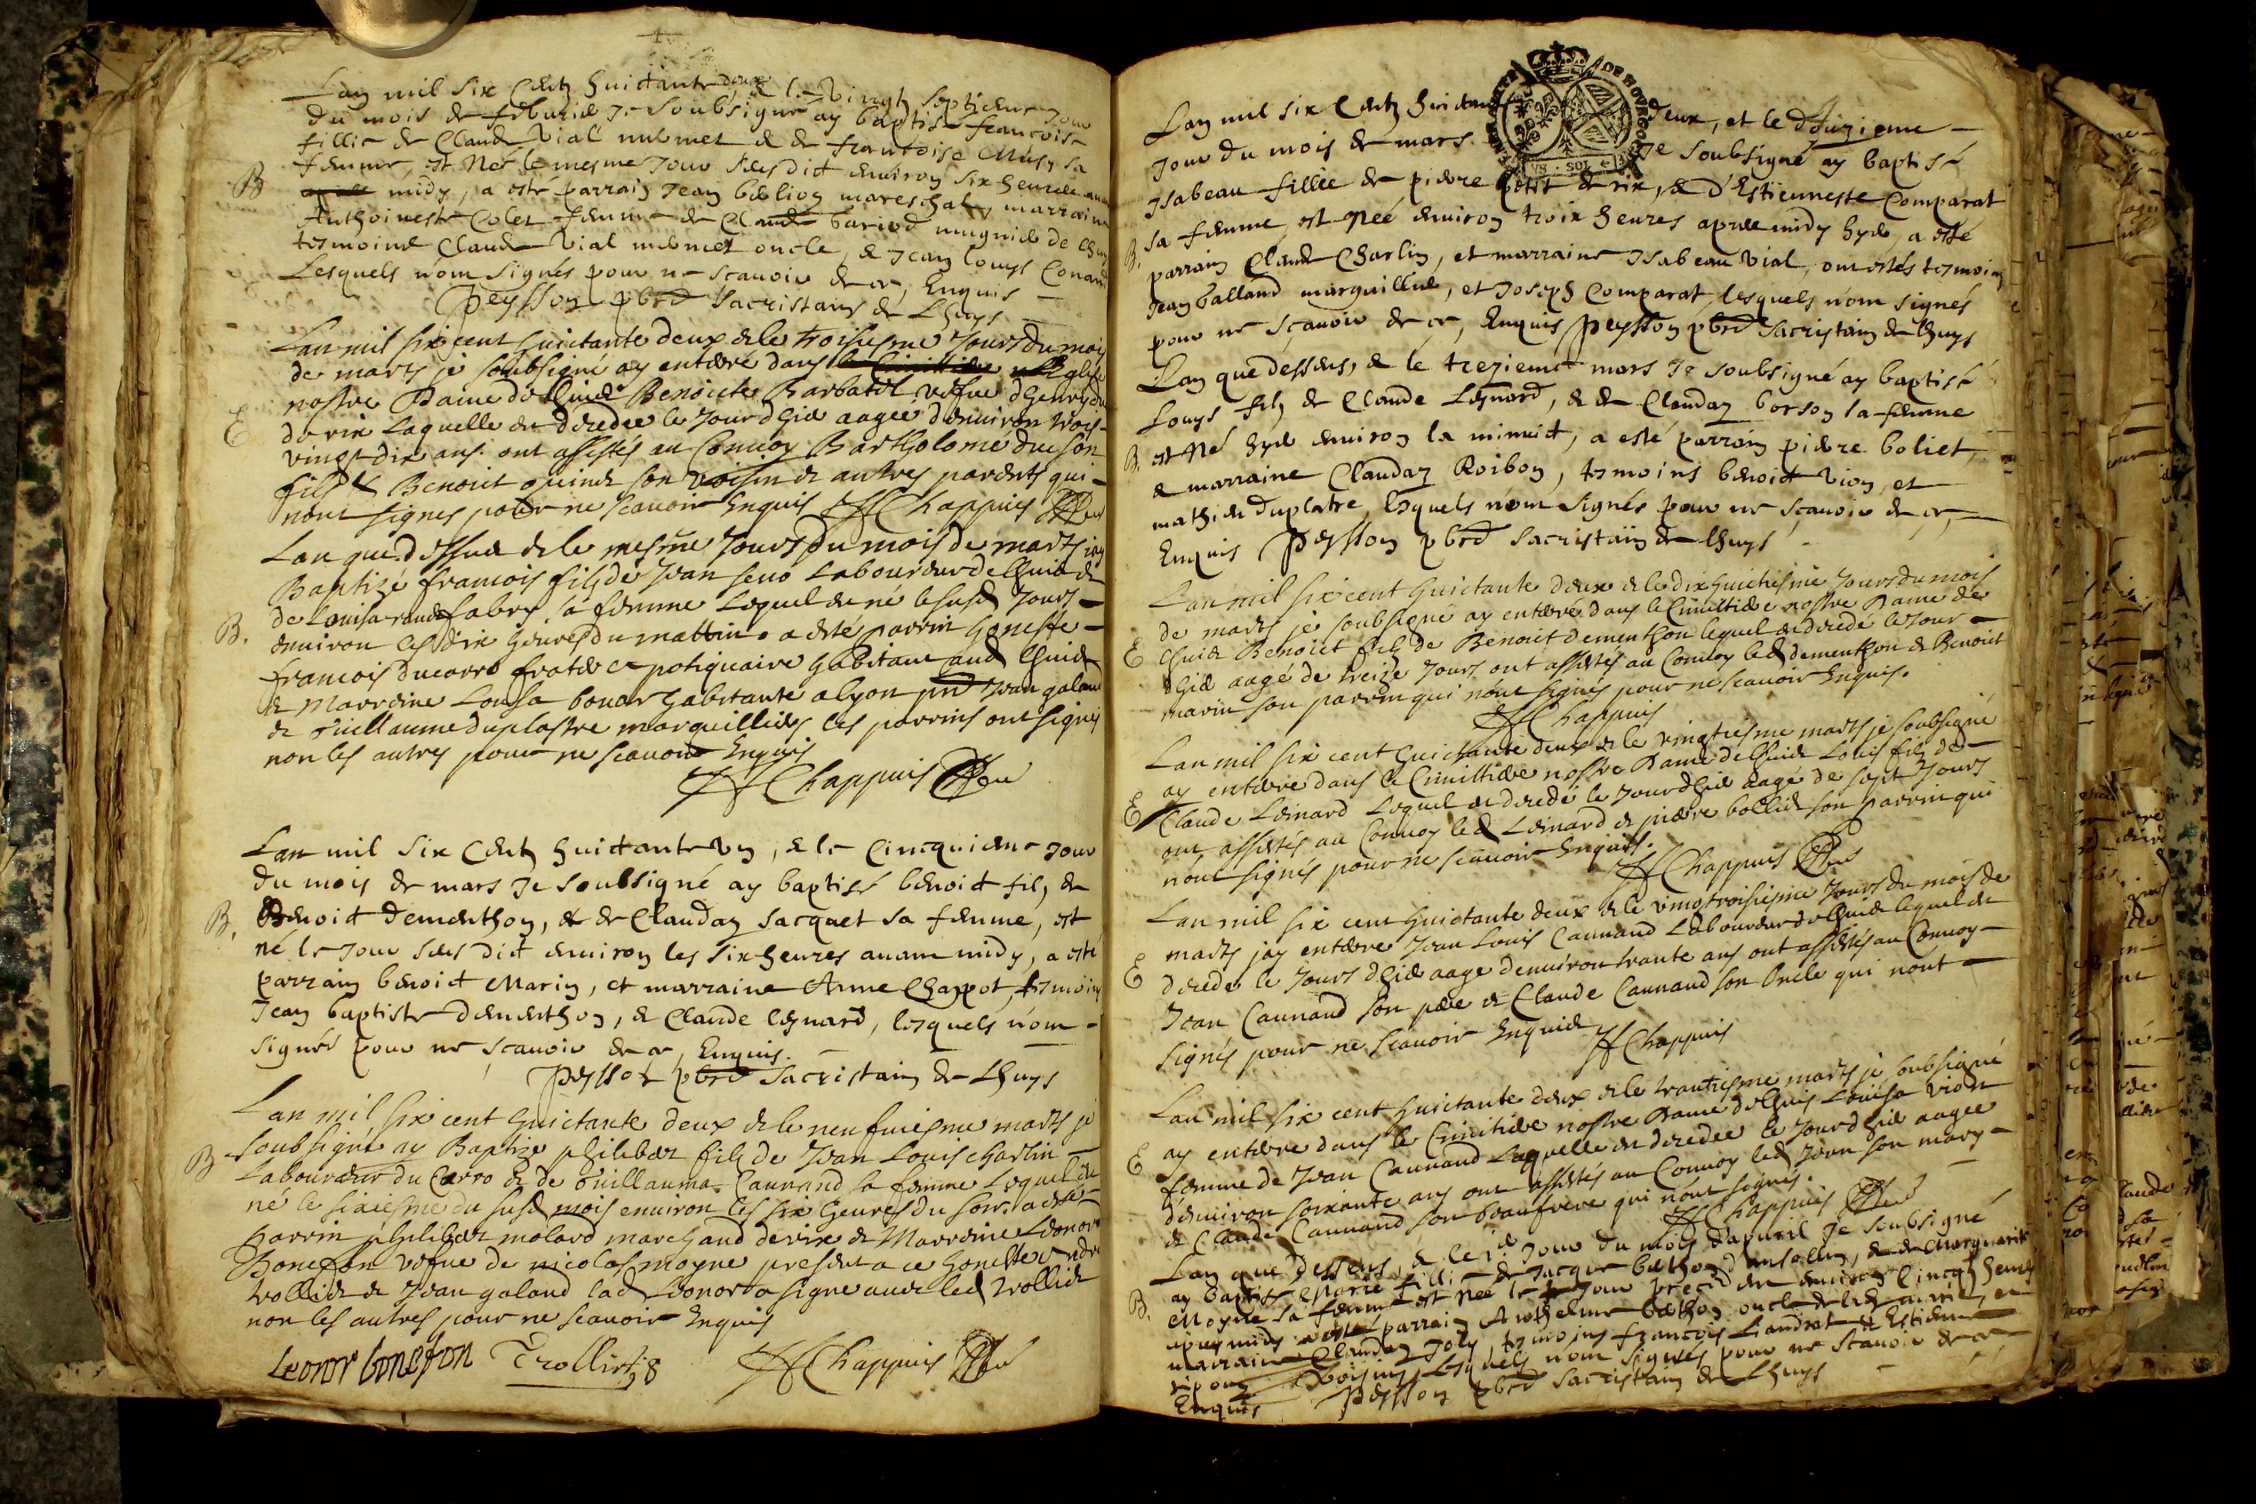 Lan mil six Centz huictante deux, & le vingtz septieme Jour
du mois de febvrier Je soubsigné ay baptisé francoise
fillie de Claude Vial et de francoise Musy sa
femme, est Née le mesme Jour susdict environ six heures avant
B
midy, a este parrain Jean bellion mareschal, marraine
Anthoineste Colet femme de Claude de Lhuys
tesmoins Claude Vial oncle, & Jean louys Conand
Lesquels n'ont signés pour ne scavoir de ce, Enquis
Peysson pbre Sacristain de Lhuys
Lan mil six cent huictante deux & le troisiesme Jours du mois
de marts je soubsigné ay entéré dans
nostre Dame de Lhuis Benoicte vefve
E
de rix Laquelle est décédée le Jour d'hier aagée d'environ trois
vingt dix ans. ont assistés au Convoy Bartholome son
fils & Benoict son voisin & autres parents qui
nont signes pour ne scavoir Enquis Chappuis
Lan que dessus & le mesme Jours du mois de marts jay
Baptizé francois filz de Jean Laboureur de Lhuis &
B.
de Louisa fabry sa femme Lequel est né le susd Jours
environ les dix heures du mattin. a esté parrin honeste
francois ducarre frater et apotiquaire habitant aud Lhuis
& Marrine Louisa habitante a lyon Jean galand
& Guillaume duplastre marguilliers les parrins ont signés
non les autres pour ne scavoir Enquis
Chappuis
Lan mil six Centz huictante un, & le Cincquieme Jour
du mois de mars Je soubsigné ay baptisé benoict filz de
B.
Benoict dementhon, & de Clauday Jacquet sa femme, est
né le Jour susdict environ les six heures avant midy, a este
parrain benoict Marin, et marraine Anne Chappot, tesmoins
Jean baptiste dementhon, & Claude Leynard, lesquels n'ont
signés pour ne sçavoir de ce, Enquis.
Peysson pbre Sacristain de Lhuys
Lan mil six cent huictante deux & le neufviesme marts je
soubsigné ay Baptize philibert filz de Jean Louis charlin
B
Laboureur du Carro & de Guillauma Caunand sa femme Lequel est
né le sixiesme du susd mois environ les six heures du soir. a esté
parrin philibert molard marchand de rix & Marrine Leonor
Bonefon vefve de nicolas moyne present a ce honeste
trollier & Jean galand lad Leonor a signé avec led trollier
non les autres pour ne scavoir Enquis
Leonor bonefon Trollier Chappuis
Lan mil six Centz huictante deux, et le douzieme
Jour du mois de mars Je soubsigné ay baptisé
Isabeau fillie de pierre petit de rix, & d'Estienneste Comparat
B.
sa femme, est Née environ troix heures apres midy hyer, a esté
parrain Claude Charlin, et marraine Isabeau Vial, ont estés tesmoins
Jean Galland marguillier, et Joseph Comparat, lesquels n'ont signés
pour ne sçavoir de ce, Enquis Peysson pbre Sacristain de Lhuys
Lan que dessus, & le trezieme mars Je soubsigné ay baptisé
Louys filz de Claude Leynard, & de Clauday borson sa femme
B.
est Né hyer environ la minuict, a esté parrain pierre boliet,
& marraine Clauday Roibon, tesmoins benoict Vion, et
mathieu duplatre, lesquels n'ont signés pour ne sçavoir de ce,
Enquis Peysson pbre Sacristain de Lhuys
Lan mil six cent huictante deux & le dix huictiesme Jours du mois
de marts je soubsigné ay entéré dans le Cimittiere nostre Dame de
E
Lhuis Benoict filz de Benoict dementhon lequel est décédé le Jour
d'hier aagé de treize Jours ont assistés au Convoy led dementhon & Benoict
marin son parrin qui n'ont signés pour ne scavoir Enquis.
Chappuis
Lan mil six cent huictante deux & le vingtiesme marts je soubsigné
ay entéré dans le Cimittiere nostre Dame de Lhuis Louis filz de
E
Claude Leinard Lequel est décédé le Jour d'hier aagé de sept Jours
ont assistés au Convoy led Leinard & pierre bollier son parrin qui
n'ont signés pour ne scavoir Enquis.
Chappuis
Lan mil six cent huictante deux & le vingt troisiesme Jours du mois de
marts jay entéré Jean Louis Caunand Laboureur de Lhuis lequel est
E
décédé le Jours d'hier aagé d'environ trante ans ont assistés au Convoy
Jean Caunand son père & Claude Caunand son Oncle qui n'ont
signés pour ne scavoir Enquis
Chappuis
Lan mil six cent huictante deux & le trantiesme marts je soubsigné
E
ay entéré dans le Cimitiere nostre Dame de Lhuis Louisa
femme de Jean Caunand Laquelle est décédée le Jour d'hier aagée
d'environ soixante ans ont assistés au Convoy led Jean son mary
& Claude Caunand son beaufrere qui n'ont signés.
Chappuis
Lan que dessus, & le Jour du mois d'apvril Je soubsigné
B.
ay baptisé Marie fillie de Jacque bethon d'ansolin, & de Marguerite
Moyne sa femme est née le Jour précédent environ Cincq heures
apres midy a esté parrain Anthelme bethon oncle et
marraine Clauday Joly, tesmoins francois Liandrat & Estienne
voisins, Lesquels n'ont signés pour ne scavoir de ce
Enquis Peysson pbre Sacristain de Lhuys